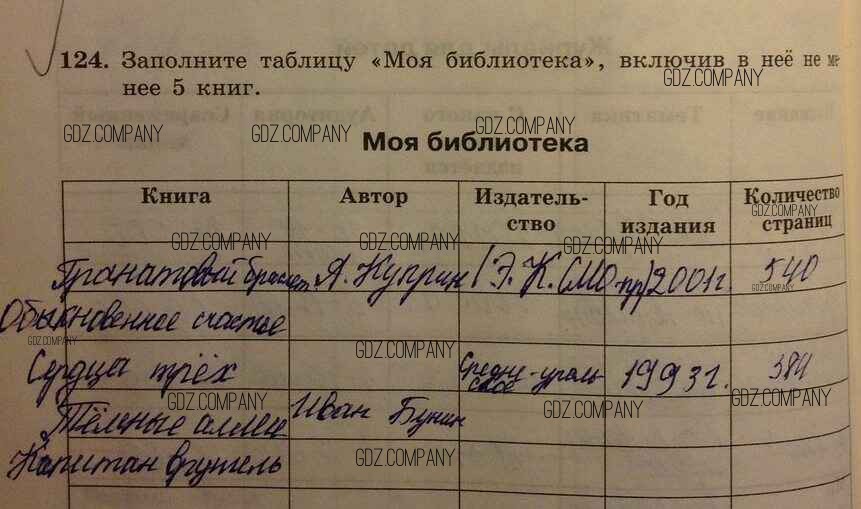 124. Заполните таблицу «Моя библиотека», включив в неё не ме-
GDZ.COMPANY
нее 5 книг.
GDZ.COMPANY GDZ.COMPANY GDZ.COMPANY
Моя библиотека
Книга Автор Издатель-ство Год издания Количество страниц
GDZ.COMPANY
GDZ.COMPANY GDZ.COMPANY GDZ.COMPANY
Гранатовый браслет А. Куприн 2001г. 540
GDZ.COMPANY
Обыкновенное счастье
GDZ.COMPANY GDZ.COMPANY
Сердца трёх Средне-уральское 1993г. 384
GDZ.COMPANY GDZ.COMPANY GDZ.COMPANY
Тёмные аллеи Иван Бунин
Капитан врунгель GDZ.COMPANY